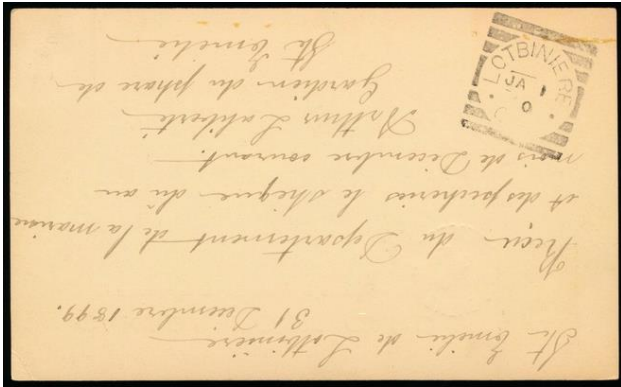 Ste Emelie de Lotbinière
31 Decembre 1899.
Reçu du Departement de la marine
et des pecheries le chèque dû au
mois de Décembre courant.
Arthur Laliberté
Gardien du phare de
St Emelie
LOTBINIERE
JA 1
0